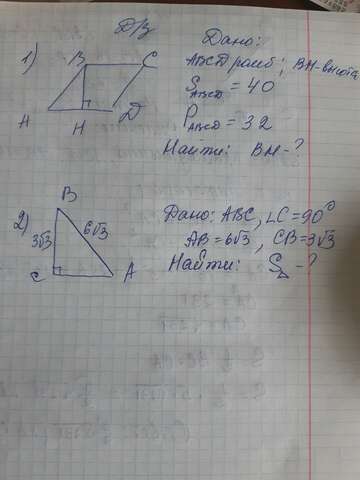 Д/З
1)
B C
A H D
Дано:
ABCD ромб; BH-высота
S ABCD = 40
P ABCD = 32
Найти: BH-?
2)
B
3√3 6√3
C A
Дано: ABC, ∠C=90°
AB=6√3, CB=3√3
Найти: S△-?